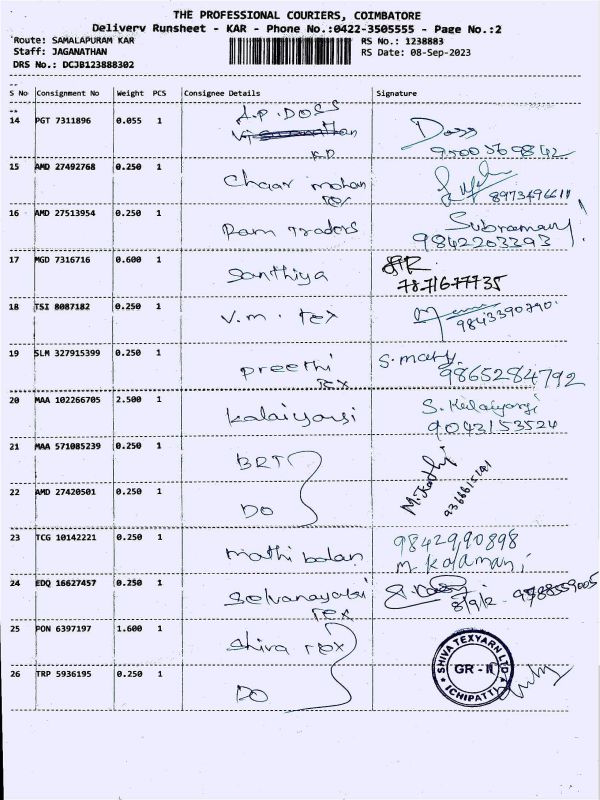 THE PROFESSIONAL COURIERS, COIMBATORE
Delivery Runsheet - KAR - Phone No.:0422-3505555 - Page No.:2
Route: SAMALAPURAM KAR
RS No.: 1238883
Staff: JAGANATHAN
RS Date: 08-Sep-2023
DRS No.: DCJB123888302
S No Consignment No Weight PCS Consignee Details Signature
14 PGT 7311896 0.055 1 A.P. DOSS Doss
15 AMD 27492768 0.250 1 Chaar mohan Tex
16 AMD 27513954 0.250 1 Ram Traders Subramani
9842203393
17 MGD 7316716 0.600 1 Santhiya
7871677735
18 TSI 8087182 0.250 1 V.m. Tex
9843390790
19 SLM 327915399 0.250 1 Preethi Tex S. mary
9865284792
20 MAA 102266705 2.500 1 Kalaiyarsi S. Kalaiyarsi
9043153524
21 MAA 571085239 0.250 1 BRT
22 AMD 27420501 0.250 1 DO
23 TCG 10142221 0.250 1 mathi balan 9842990898
24 EDQ 16627457 0.250 1 Selvanayaki Tex
25 PON 6397197 1.600 1 Shiva Tex
SHIVA TEXYARN LTD
GR - II
ICHIPATTI
26 TRP 5936195 0.250 1 DO